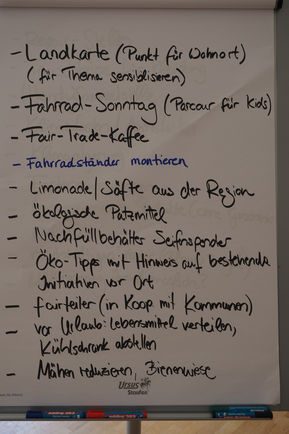 - Landkarte (Punkt für Wohnort)
(für Thema sensibilisieren)
- Fahrrad-Sonntag (Parcour für Kids)
- Fair-Trade-Kaffee
- Fahrradständer montieren
- Limonade/Säfte aus der Region
- ökologische Putzmittel
- Nachfüllbehälter Seifenspender
- Öko-Tipps mit Hinweis auf bestehende
Initiativen vor Ort
- fairteiler (in Koop mit Kommunen)
- vor Urlaub: Lebensmittel verteilen,
Kühlschrank abstellen
- Mähen reduzieren, Bienenwiese
Ursus
StaoFex